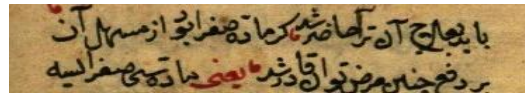 باید بعلاج آن ترا حاضر شد که ماده صفرا بود از مسهل آن
بر دفع چنین مرض توان قادر شد یعنی ماده تپ صفراییه